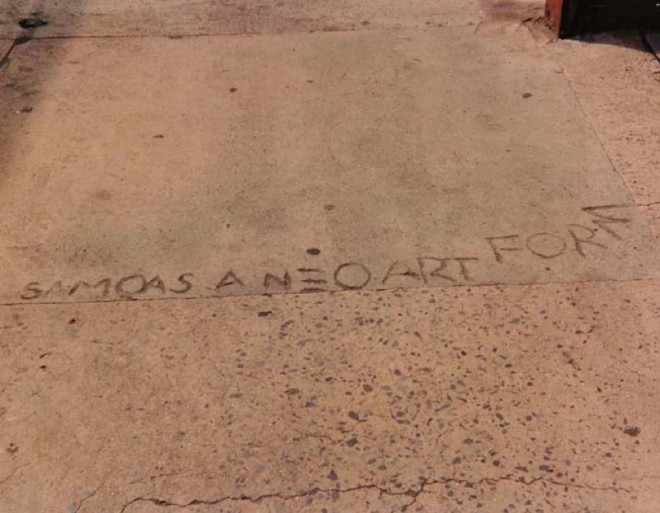 SAMOAS A NEO ART FORM